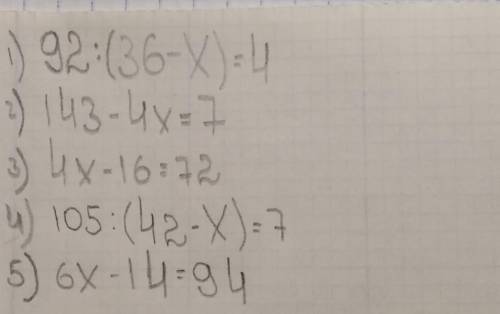 1) 92:(36-x)=4
2) 143-4x=7
3) 4x-16=72
4) 105:(42-x)=7
5) 6x-14=94